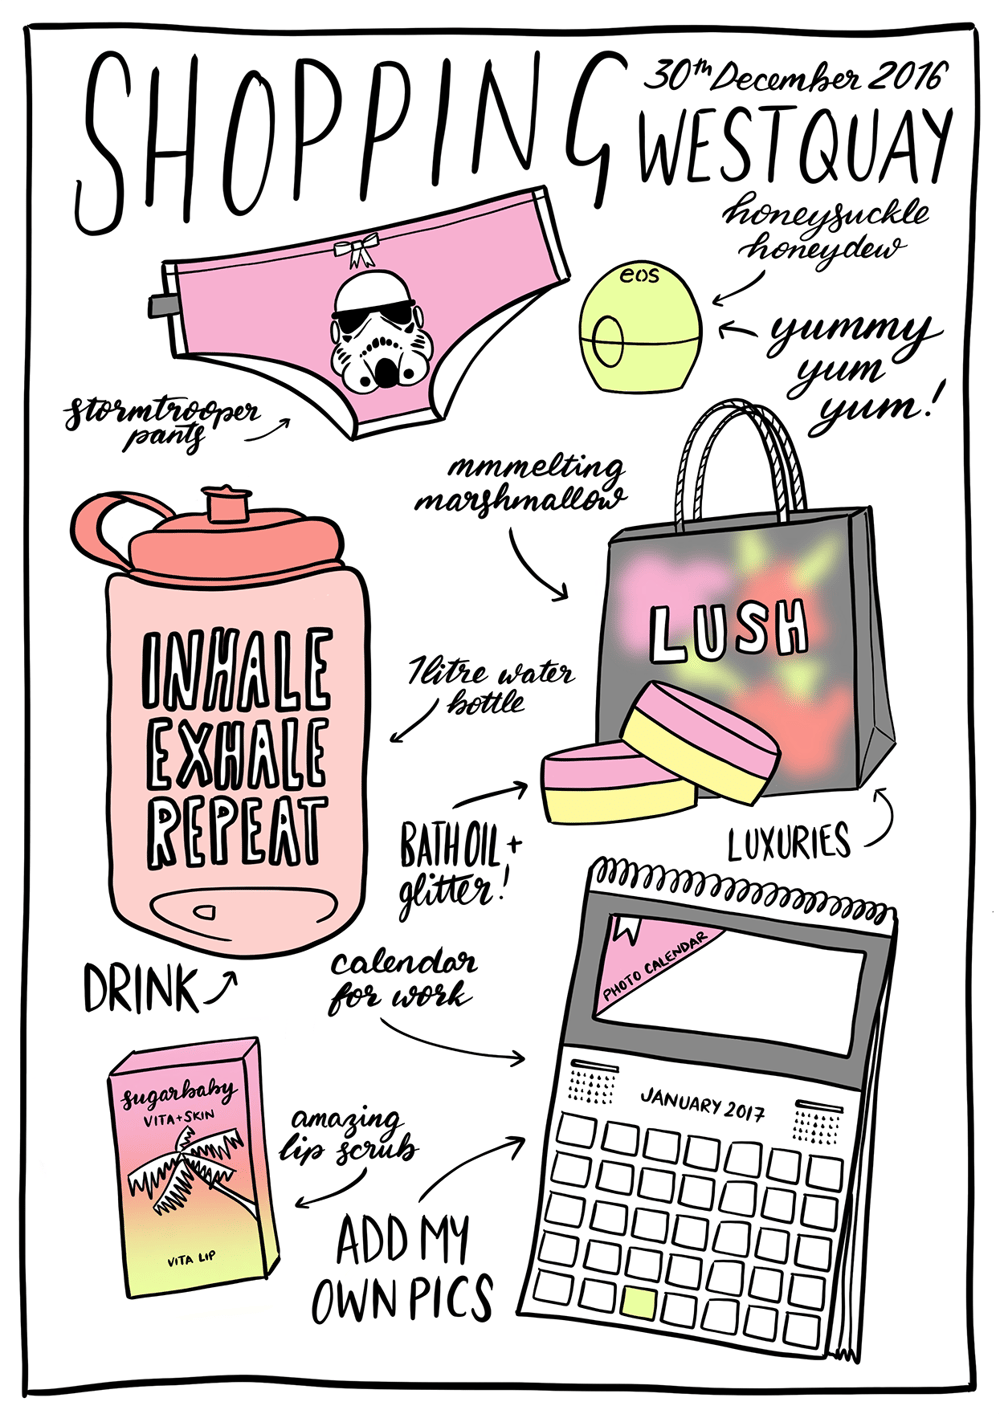 SHOPPING
30th December 2016
WESTQUAY
honeysuckle
honeydew
eos
yummy
yum
yum!
stormtrooper
pants
mmmelting
marshmallow
LUSH
INHALE
EXHALE
REPEAT
1litre water
bottle
BATH OIL +
glitter!
LUXURIES
DRINK
calendar
for work
PHOTO CALENDAR
JANUARY 2017
sugarbaby
VITA+SKIN
VITA LIP
amazing
lip scrub
ADD MY
OWN PICS